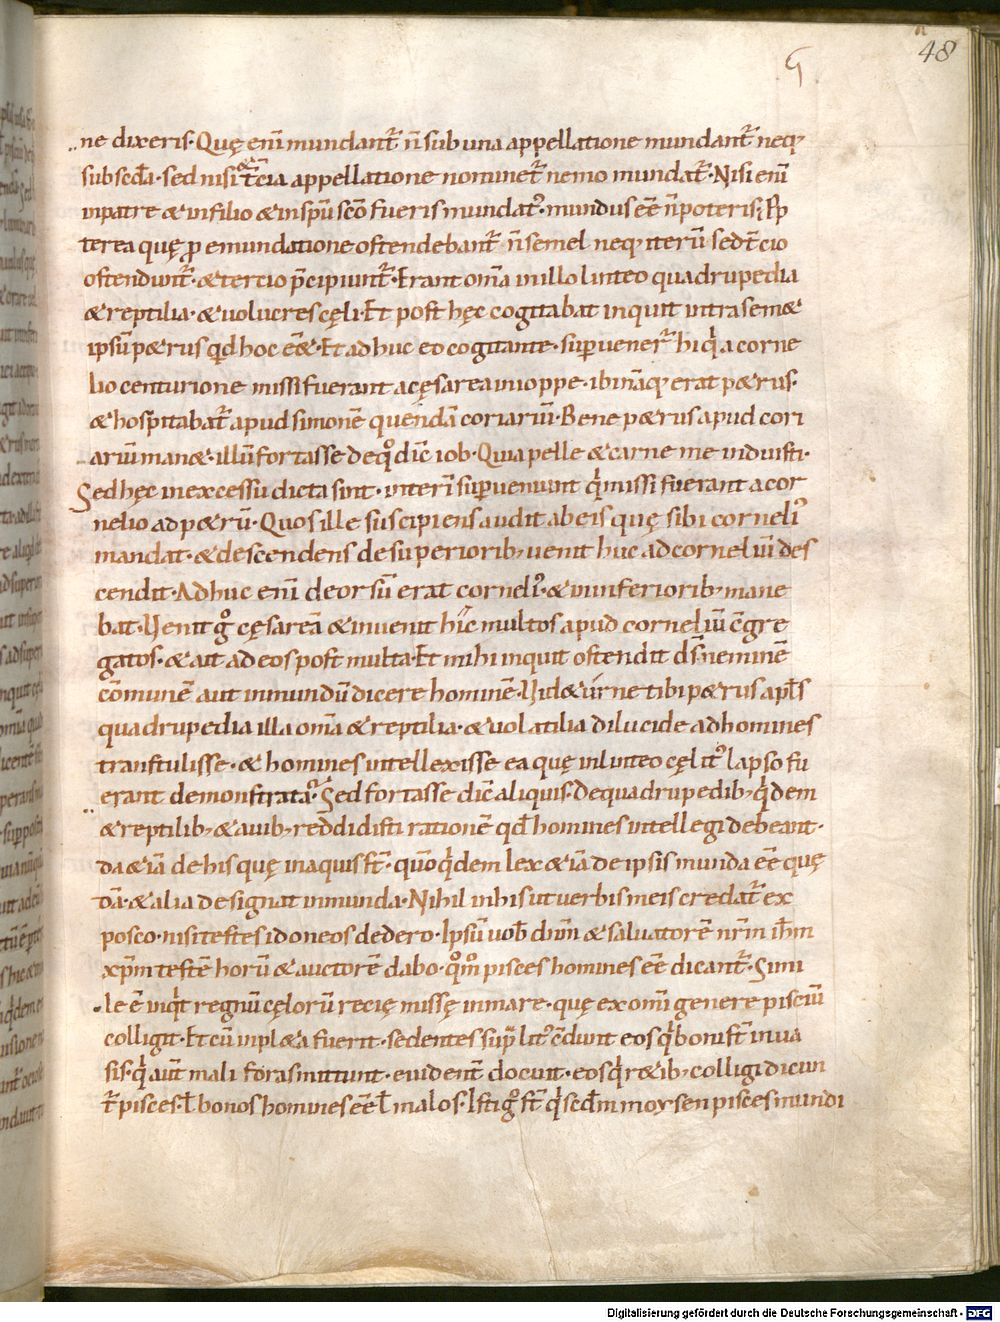 48
ne dixeris. Quę eni̅ mundant̃ n̅ sub una appellatione mundant̃ neq;
sub scd̅a. sed nisi & t̅cia appellatione nominet̃ nemo mundat̃. Nisi eni̅
in patre & in filio & in sp̅u sc̅o fueris mundat᷒. mundus e̅e n̅ poteris. P̱p
terea quę ꝓ emundatione ostendebant̃ n̅ semel neq; iteru̅ sed t̅cio
ostendunt̃. & tercio p̅cipiunt̃. Erant om̅a in illo linteo quadrupedia
& reptilia. & volucres cęli. Et post hęc cogitabat inquit intra sem&
ipsu̅ p&rus qd hoc e̅e&. Et adhuc eo cogitante. suꝑvener̃ hi q̍ a corne
lio centurione missi fuerant a cęsarea in ioppe. ibi na̅q; erat p&rus.
& hospitabat̃ apud simone̅ quenda̅ coriariu̅. Bene p&rus apud cori
ariu̅ man&. illu̅ fortasse de q̊ dic̅ iob. Quia pelle & carne me induisti.
Sed hęc in excessu dicta sint. interi̅ suꝑveniunt q̍ missi fuerant a cor
nelio ad p&ru̅. Quos ille suscipiens audit ab eis quę sibi corneli᷒
mandat. & descendens de superiorib; venit huc ad corneliu̅ des
cendit. Adhuc eni̅ deorsu̅ erat corneli᷒. & in inferiorib; mane
bat. Venit g̊ cęsarea̅ & invenit hic multos apud corneliu̅ c̅gre
gatos. & ait ad eos post multa. Et mihi inquit ostendit ds̅ nemine̅
co̅mune̅ aut inmundu̅ dicere homine̅. Vid&ur ne tibi p&rus apl̅s
quadrupedia illa om̅a & reptilia. & volatilia dilucide ad homines
transtulisse. & homines intellexisse ea quę in linteo cęlit᷒ lapso fu
erant demonstrata. Sed fortasse dic̅ aliquis. De quadrupedib; q̍dem
& reptilib; & avib; reddidisti ratione̅ qd̅ homines intellegi debeant.
da & ia̅ de his quę in aquis st̅. quo̅ q̍dem lex & ia̅ de ipsis munda e̅e quę
da̅. & alia designat inmunda. Nihil in his ut verbis meis credat̃ ex
posco. nisi testes idoneos dedero. Ipsu̅ vob̅ dnm̅ & salvatore̅ nr̅m ih̅m
xp̅m teste̅ horu̅ & auctore̅ dabo. q̊m̅ pisces homines e̅e dicant̃. Simi
le e̅ inq̍t regnu̅ cęloru̅ recię missę in mare. quę ex omi̅ genere pisciu̅
colligit. Et cu̅ inpl&a fuerit. sedentes sup̅ lit᷒ c̅dunt eos q̍ boni st̅ in va
sis. q̍ aut̅ mali foras mittunt. evident̅ docuit. eos q̍ r&ib; colligi dicun
t̃ pisces. ł bonos homines e̅e ł malos. Isti g̊ st̅ q̍ scd̅m moysen pisces mundi
Digitalisierung gefördert durch die Deutsche Forschungsgemeinschaft - DFG